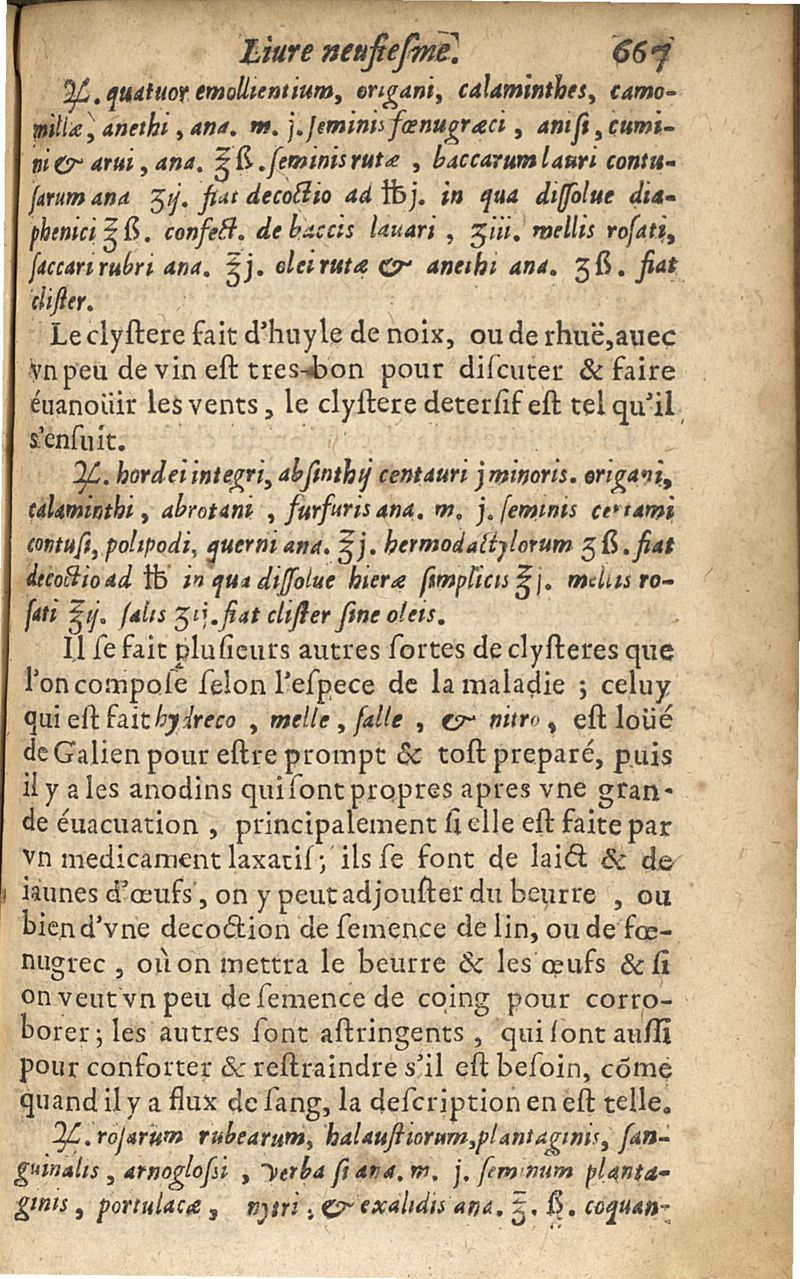 Liure neufiesme. 667
℞. quatuor emollientium, origani, calaminthes, camo-
millæ, anethi, ana. m. j. seminis fœnugræci, anisi, cumi-
ni & arui, ana. ℥ ß. seminis rutæ, baccarum lauri contu-
sarum ana ʒij. fiat decoctio ad ℔ j. in qua dissolue dia-
phenici ℥ ß. confect. de baccis lauari, ʒiii. mellis rosati,
saccari rubri ana. ℥j. olei rutæ & anethi ana. ʒ ß. fiat
clister.
Le clystere fait d'huyle de noix, ou de rhuë, auec
vn peu de vin est tres-bon pour discuter & faire
éuanoüir les vents, le clystere detersif est tel qu'il
s'ensuit.
℞. hordei integri, absinthij centauri j minoris. origani,
calaminthi, abrotani, furfuris ana. m. j. seminis certami
contusi, polipodi, querni ana. ℥j. hermodactylorum ʒ ß. fiat
decoctio ad ℔ in qua dissolue hieræ simplicis ℥j. mellis ro-
sati ℥ij. salis ʒij. fiat clister sine oleis.
Il se fait plusieurs autres sortes de clysteres que
l'on compose selon l'espece de la maladie; celuy
qui est fait hydreco, melle, salle, & nitro, est loüé
de Galien pour estre prompt & tost preparé, puis
il y a les anodins qui sont propres apres vne gran-
de éuacuation, principalement si elle est faite par
vn medicament laxatis; ils se font de laict & de
iaunes d'œufs, on y peut adjouster du beurre, ou
bien d'vne decoction de semence de lin, ou de fœ-
nugrec, où on mettra le beurre & les œufs & si
on veut vn peu de semence de coing pour corro-
borer; les autres sont astringents, qui sont aussi
pour conforter & restraindre s'il est besoin, cõme
quand il y a flux de sang, la description en est telle.
℞. rosarum rubearum, halaustiorum, plantaginis, san-
guinalis, arnoglossi, verba si ana. m. j. seminum planta-
ginis, portulacæ, nytri, & exalidis ana. ℥. ß. coquan-